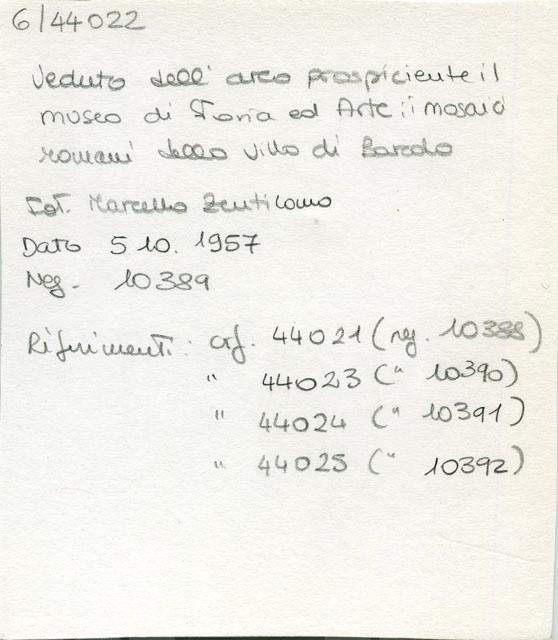 6/44022
Veduta dell'area prospiciente il
museo di Storia ed Arte: i mosaici
romani della villa di Barcola
Fot. Marcello Zenticomo
Data 5 10. 1957
Neg. 10389
Riferimenti: crf. 44021 (neg. 10388)
" 44023 (" 10390)
" 44024 (" 10391)
" 44025 (" 10392)